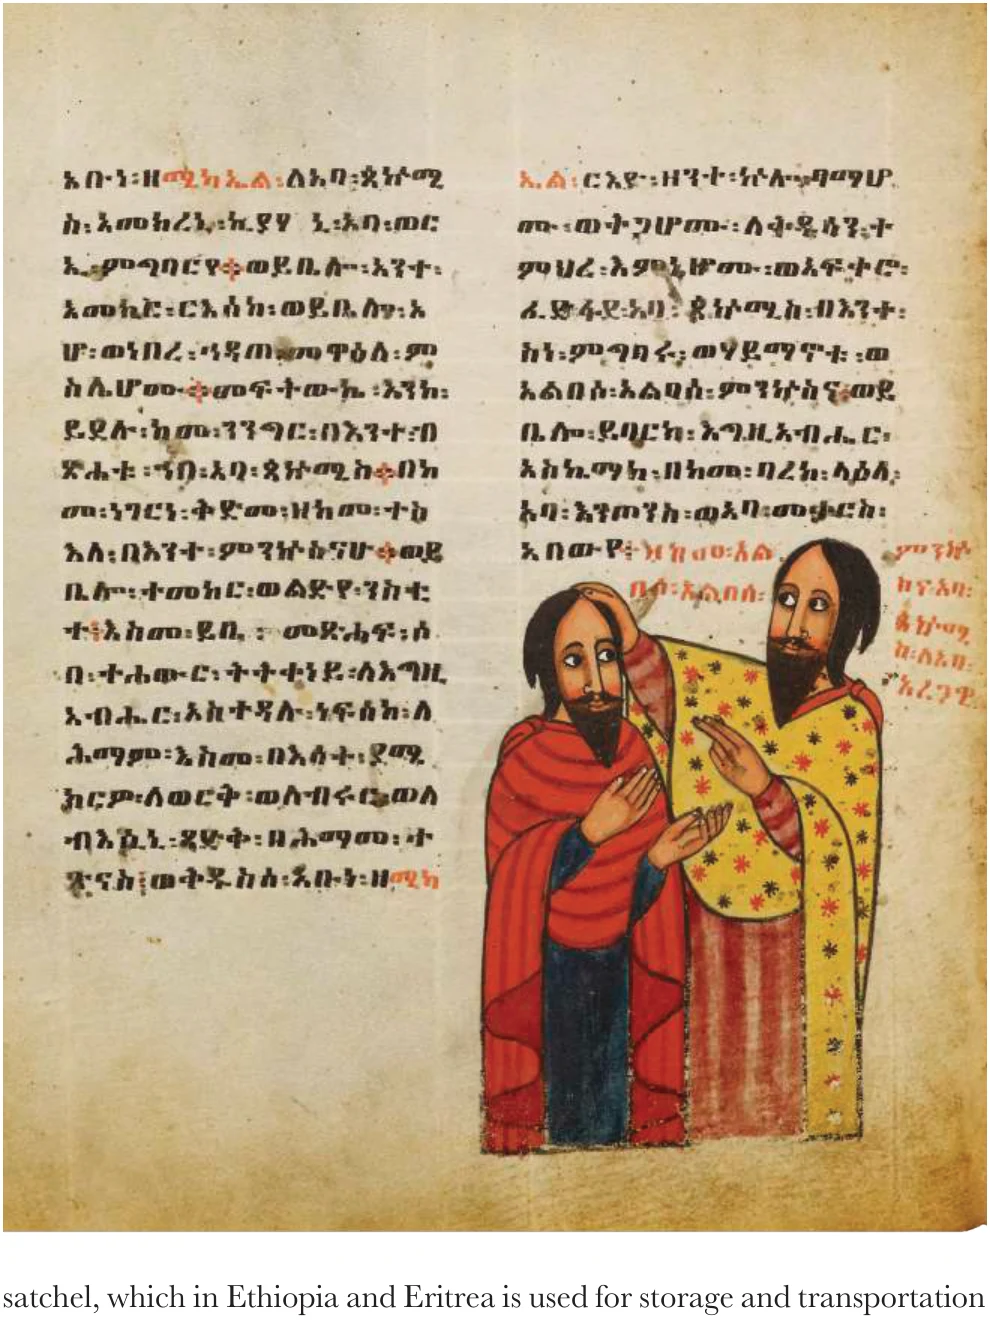 አቡነ፡ዘሚካኤል፡ለአባ፡ጳኵሚ
ስ፡አመከረኒ፡ኪያሃ ኒ፡አባ፡ወር
ኢ፡ምግባርየ፨ወይቤሎ፡አንተ፡
አመኪሮ፡ርእሰከ፡ወይቤሎ፡አ
ሆ፡ወነበረ፡ኅዳጠ፡መዋዕለ፡ም
ስሌሆሙ፨መፍትው፡ኬ፡እንከ፡
ይደሉ፡ከመ፡ንንግር፡በእንተ፡ብ
ጽሐቱ፡ኀበ፡አባ፡ጳኵሚስ፨በከ
መ፡ነገርነ፡ቅድመ፡ዘከመ፡ተስ
እለ፡በእንተ፡ምንኵስናሁ፨ወይ
ቤሎ፡ተመከር፡ወልድየ፡ንስቲ
ተ፡እስመ፡ይቤ፡ መጽሐፍ፡ሶ
በ፡ተሐውር፡ትትቀነይ፡ለእግዚ
አብሔር፡አስተዳሉ፡ነፍሰከ፡ለ
ሕማም፡እስመ፡በእሳት፡ያሜ
ክርዎ፡ለወርቅ፡ወለብሩር፡ወለ
ብእሲኒ፡ጻድቅ፡ዘሕማመ፡ት
ጽናስ፡ወቅዱስሰ፡አቡነ፡ዘሚካ
ኤል፡ርእዮ፡ዘንተ፡ኵሎ፡ግማሆ
ሙ፡ወትጋሆሙ፡ለቅዱሳን፡ተ
ምህረ፡እምኔሆሙ፡ወአፍቀሮ፡
ፈድፋደ፡አባ፡ጳኵሚስ፡በእንተ፡
ስነ፡ምግባሩ፡ወሃይማኖቱ፡ወ
አልበሶ፡አልባሰ፡ምንኵስና፡ወይ
ቤሎ፡ይባርክ፡እግዚአብሔር፡
አስኬማከ፡በከመ፡ባረከ፡ላዕለ፡
አባ፡እንጦንስ፡ወአባ፡መቃርስ፡
አበውየ፡ዘከመ፡አል
በሶ፡አልበሰ፡
ምንኵ
ስና፡አባ፡
ጳኵሚ
ስ፡ለአባ፡
አረጋዊ
satchel, which in Ethiopia and Eritrea is used for storage and transportation